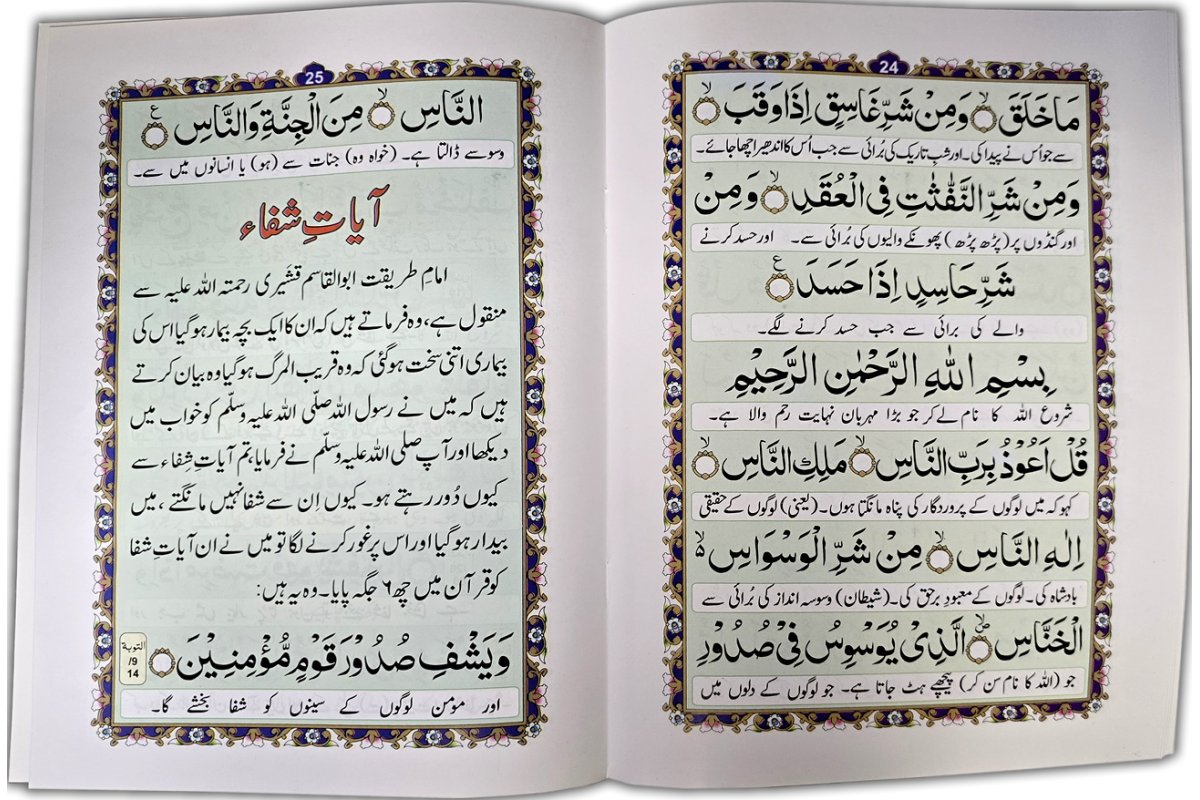 24
مَا خَلَقَ ۙ وَ مِنْ شَرِّ غَاسِقٍ اِذَا وَقَبَ ۙ
سے جو اُس نے پیدا کی۔ اور شبِ تاریک کی بُرائی سے جب اُس کا اندھیرا چھا جائے۔
وَ مِنْ شَرِّ النَّفّٰثٰتِ فِی الْعُقَدِ ۙ وَ مِنْ
اور گنڈوں پر (پڑھ پڑھ) پھونکنے والیوں کی بُرائی سے۔ اور حسد کرنے
شَرِّ حَاسِدٍ اِذَا حَسَدَ ع
والے کی برائی سے جب حسد کرنے لگے۔
بِسْمِ اللّٰهِ الرَّحْمٰنِ الرَّحِیْمِ
شروع اللہ کا نام لے کر جو بڑا مہربان نہایت رحم والا ہے۔
قُلْ اَعُوْذُ بِرَبِّ النَّاسِ ۙ مَلِكِ النَّاسِ ۙ
کہو کہ میں لوگوں کے پروردگار کی پناہ مانگتا ہوں۔ (یعنی) لوگوں کے حقیقی
اِلٰهِ النَّاسِ ۙ مِنْ شَرِّ الْوَسْوَاسِ ۙ
بادشاہ کی۔ لوگوں کے معبودِ برحق کی۔ (شیطان) وسوسہ انداز کی بُرائی سے
الْخَنَّاسِ الَّذِیْ یُوَسْوِسُ فِیْ صُدُوْرِ
جو (اللہ کا نام سن کر) پیچھے ہٹ جاتا ہے۔ جو لوگوں کے دلوں میں
25
النَّاسِ ۙ مِنَ الْجِنَّةِ وَالنَّاسِ ع
وسوسے ڈالتا ہے۔ (خواہ وہ) جنات سے (ہو) یا انسانوں میں سے۔
آیاتِ شفاء
امامِ طریقت ابوالقاسم قشیری رحمتہ اللہ علیہ سے
منقول ہے، وہ فرماتے ہیں کہ ان کا ایک بچہ بیمار ہو گیا اس کی
بیماری اتنی سخت ہو گئی کہ وہ قریب المرگ ہو گیا وہ بیان کرتے
ہیں کہ میں نے رسول اللہ صلّی اللہ علیہ وسلّم کو خواب میں
دیکھا اور آپ صلی اللہ علیہ وسلّم نے فرمایا، تم آیاتِ شِفاء سے
کیوں دُور رہتے ہو۔ کیوں اِن سے شفا نہیں مانگتے، میں
بیدار ہو گیا اور اس پر غور کرنے لگا تو میں نے ان آیاتِ شفا
کو قرآن میں چھ ۶ جگہ پایا۔ وہ یہ ہیں:
وَیَشْفِ صُدُوْرَ قَوْمٍ مُّؤْمِنِیْنَ
التوبة
9/
14
اور مؤمن لوگوں کے سینوں کو شفا بخشے گا۔